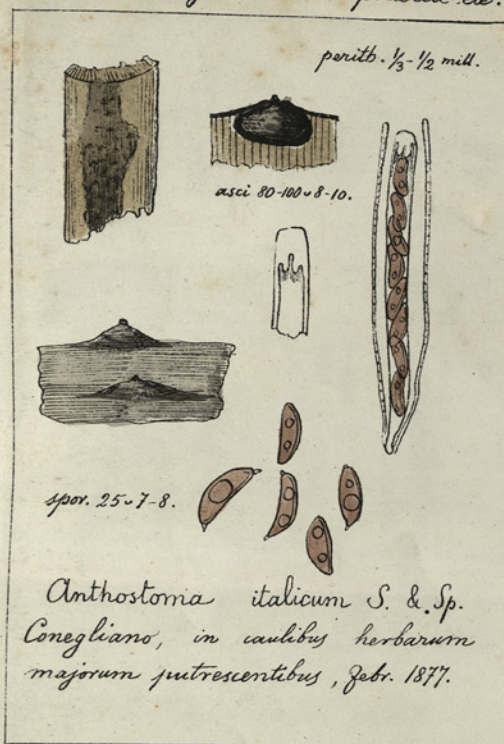 perith. 1/3-1/2 mill.
asci 80-100 ᵕ 8-10.
spor. 25 ᵕ 7-8.
Anthostoma italicum S. & Sp.
Conegliano, in caulibus herbarum
majorum putrescentibus, Febr. 1877.